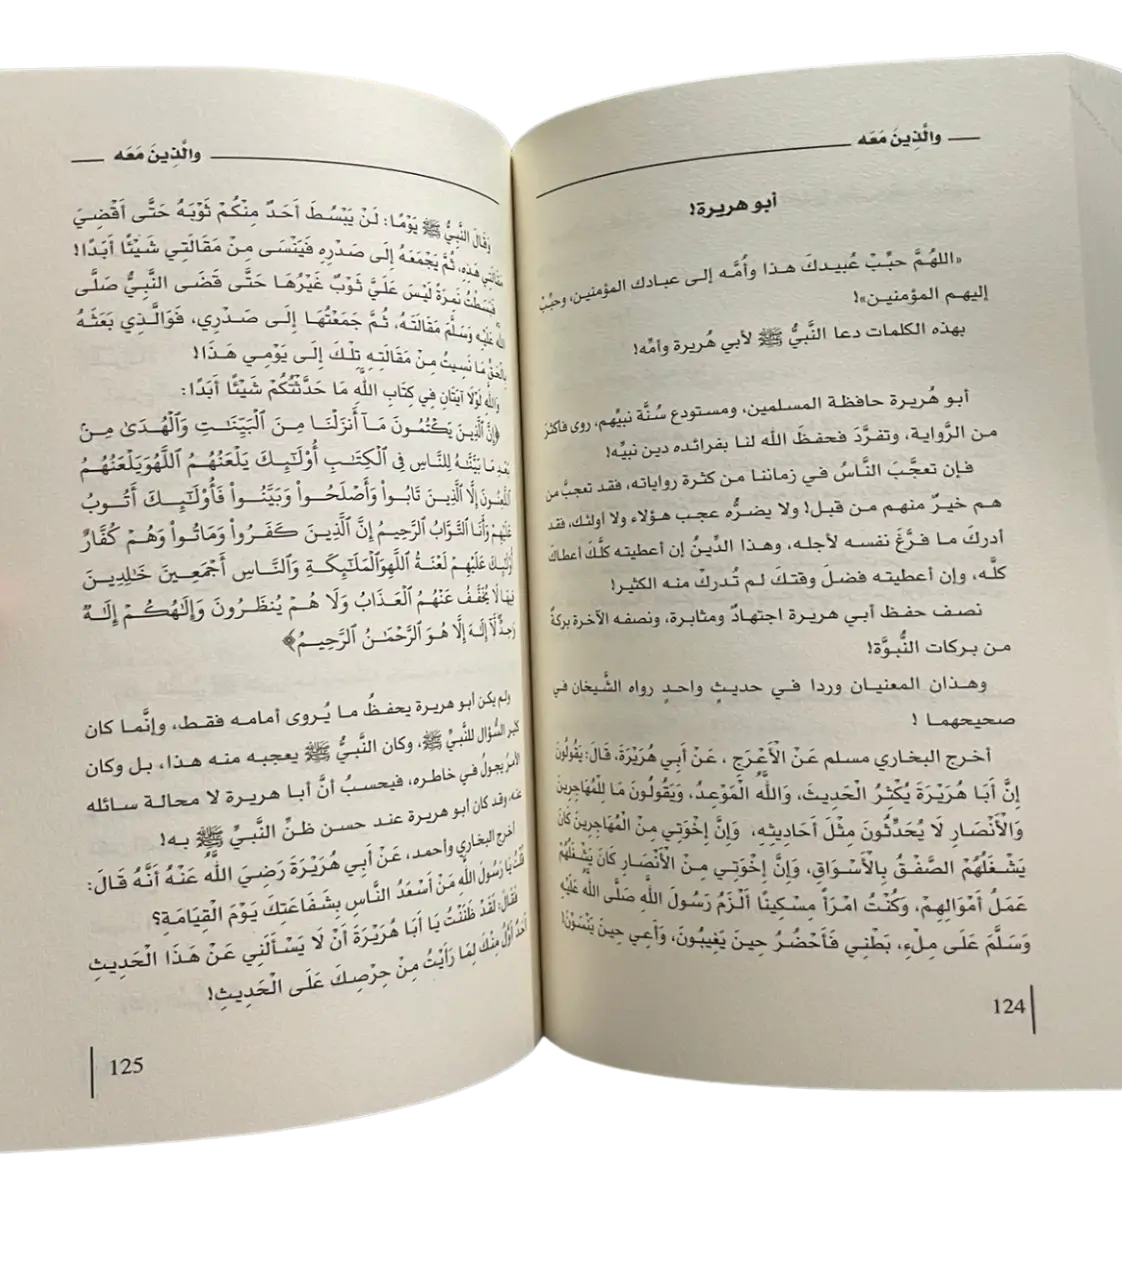 والَّذِينَ مَعَه
أبو هريرة!
«اللهُمَّ حبِّبْ عُبيدكَ هذا وأُمَّه إلى عبادك المؤمنين، وحبِّبْ
إليهم المؤمنين»!
بهذه الكلمات دعا النَّبيُّ ﷺ لأبي هُريرة وأمِّه!
أبو هُريرة حافظة المسلمين، ومستودع سُنَّة نبيِّهم، روى فأكثرَ
من الرِّواية، وتفرَّدَ فحفظَ الله لنا بفرائده دين نبيِّه!
فإن تعجَّبَ النَّاسُ في زماننا من كثرة رواياته، فقد تعجبَّ من
هم خيرٌ منهم من قبل! ولا يضرُّه عجب هؤلاء ولا أولئك، فقد
أدركَ ما فرَّغَ نفسه لأجله، وهذا الدِّينُ إن أعطيته كلَّكَ أعطاكَ
كلَّه، وإن أعطيته فضلَ وقتكَ لم تُدركْ منه الكثير!
نصف حفظ أبي هريرة اجتهادٌ ومثابرة، ونصفه الآخرة بركةٌ
من بركات النُّبوَّة!
وهذان المعنيان وردا في حديثٍ واحدٍ رواه الشَّيخان في
صحيحهما !
أخرج البخاري مسلم عَنْ الْأَعْرَجِ ، عَنْ أَبِي هُرَيْرَةَ، قَالَ: يَقُولُونَ
إِنَّ أَبَا هُرَيْرَةَ يُكْثِرُ الْحَدِيثَ، وَاللَّهُ الْمَوْعِدُ، وَيَقُولُونَ مَا لِلْمُهَاجِرِينَ
وَالْأَنْصَارِ لَا يُحَدِّثُونَ مِثْلَ أَحَادِيثِهِ، وَإِنَّ إِخْوَتِي مِنْ الْمُهَاجِرِينَ كَانَ
يَشْغَلُهُمْ الصَّفْقُ بِالْأَسْوَاقِ، وَإِنَّ إِخْوَتِي مِنْ الْأَنْصَارِ كَانَ يَشْغَلُهُمْ
عَمَلُ أَمْوَالِهِمْ، وَكُنْتُ امْرَأً مِسْكِينًا أَلْزَمُ رَسُولَ اللَّهِ صَلَّى اللَّهُ عَلَيْهِ
وَسَلَّمَ عَلَى مِلْءِ، بَطْنِي فَأَحْضُرُ حِينَ يَغِيبُونَ، وَأَعِي حِينَ يَنْسَوْنَ!
124
والَّذِينَ مَعَه
وَقَالَ النَّبِيُّ ﷺ يَوْمًا: لَنْ يَبْسُطَ أَحَدٌ مِنْكُمْ ثَوْبَهُ حَتَّى أَقْضِيَ
مَقَالَتِي هَذِهِ، ثُمَّ يَجْمَعَهُ إِلَى صَدْرِهِ فَيَنْسَى مِنْ مَقَالَتِي شَيْئًا أَبَدًا!
فَبَسَطْتُ نَمِرَةً لَيْسَ عَلَيَّ ثَوْبٌ غَيْرُهَا حَتَّى قَضَى النَّبِيُّ صَلَّى
اللَّهُ عَلَيْهِ وَسَلَّمَ مَقَالَتَهُ، ثُمَّ جَمَعْتُهَا إِلَى صَدْرِي، فَوَالَّذِي بَعَثَهُ
بِالْحَقِّ مَا نَسِيتُ مِنْ مَقَالَتِهِ تِلْكَ إِلَى يَوْمِي هَذَا!
وَاللَّهِ لَوْلَا آيَتَانِ فِي كِتَابِ اللَّهِ مَا حَدَّثْتُكُمْ شَيْئًا أَبَدًا:
﴿إِنَّ ٱلَّذِينَ يَكْتُمُونَ مَآ أَنزَلْنَا مِنَ ٱلْبَيِّنَٰتِ وَٱلْهُدَىٰ مِنۢ
بَعْدِ مَا بَيَّنَّٰهُ لِلنَّاسِ فِى ٱلْكِتَٰبِ أُو۟لَٰٓئِكَ يَلْعَنُهُمُ اللَّهُوَيَلْعَنُهُمُ
ٱللَّٰعِنُونَ إِلَّا ٱلَّذِينَ تَابُوا۟ وَأَصْلَحُوا۟ وَبَيَّنُوا۟ فَأُو۟لَٰٓئِكَ أَتُوبُ
عَلَيْهِمْ وَأَنَا ٱلتَّوَّابُ ٱلرَّحِيمُ إِنَّ ٱلَّذِينَ كَفَرُوا۟ وَمَاتُوا۟ وَهُمْ كُفَّارٌ
أُو۟لَٰٓئِكَ عَلَيْهِمْ لَعْنَةُ اللَّهِوَٱلْمَلَٰٓئِكَةِ وَٱلنَّاسِ أَجْمَعِينَ خَٰلِدِينَ
فِيهَا لَا يُخَفَّفُ عَنْهُمُ ٱلْعَذَابُ وَلَا هُمْ يُنظَرُونَ وَإِلَٰهُكُمْ إِلَٰهٌ
وَٰحِدٌ لَّآ إِلَٰهَ إِلَّا هُوَ ٱلرَّحْمَٰنُ ٱلرَّحِيمُ﴾
ولم يكن أبو هريرة يحفظُ ما يُروى أمامه فقط، وإنَّما كان
كثير السُّؤال للنَّبيِّ ﷺ، وكان النَّبيُّ ﷺ يعجبه منه هذا، بل وكان
الأمرُ يجولُ في خاطره، فيحسبُ أنَّ أبا هريرة لا محالة سائله
عنه، وقد كان أبو هريرة عند حسن ظنِّ النَّبيِّ ﷺ به!
أخرج البخاري وأحمد، عَنْ أَبِي هُرَيْرَةَ رَضِيَ اللَّهُ عَنْهُ أَنَّهُ قَالَ:
قُلْتُ يَا رَسُولَ اللَّهِ مَنْ أَسْعَدُ النَّاسِ بِشَفَاعَتِكَ يَوْمَ الْقِيَامَةِ؟
فَقَالَ: لَقَدْ ظَنَنْتُ يَا أَبَا هُرَيْرَةَ أَنْ لَا يَسْأَلَنِي عَنْ هَذَا الْحَدِيثِ
أَحَدٌ أَوَّلُ مِنْكَ لِمَا رَأَيْتُ مِنْ حِرْصِكَ عَلَى الْحَدِيثِ!
125